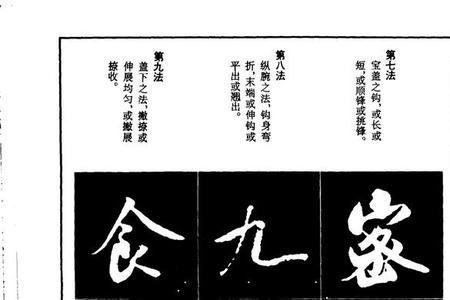 第七法
宝盖之钩，或长或
短，或顺锋或挑锋。
第八法
纵腕之法，钩身弯
折，末端或伸钩或
平出或翘出。
第九法
盖下之法，撇捺或
伸展均匀，或撇展
捺收。
密
九
食